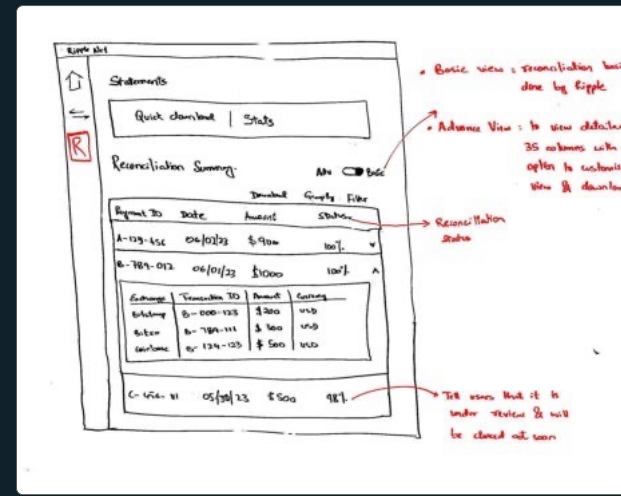 Ripple Net
Statements
Quick download | Stats
R
Reconciliation Summary
Adv Basic
Download Graphs Filter
Payment ID Date Amount Status
A-123-456 06/02/23 $900 100%
B-789-012 06/01/23 $1000 100%
Exchange Transaction ID Amount Currency
Bitstamp B-000-123 $200 USD
B-789-111 $300 USD
Coinbase B-124-123 $500 USD
05/30/23 $500 98%
• Basic view : reconciliation
done by Ripple
• Advance View : to view
35 columns with
option to
view &
Reconciliation
Status
Tell users that it is
under review & will
be closed out soon